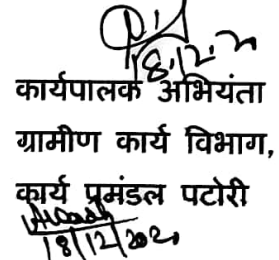 18.12.21
कार्यपालक अभियंता
ग्रामीण कार्य विभाग,
कार्य प्रमंडल पटोरी
18/12/2021